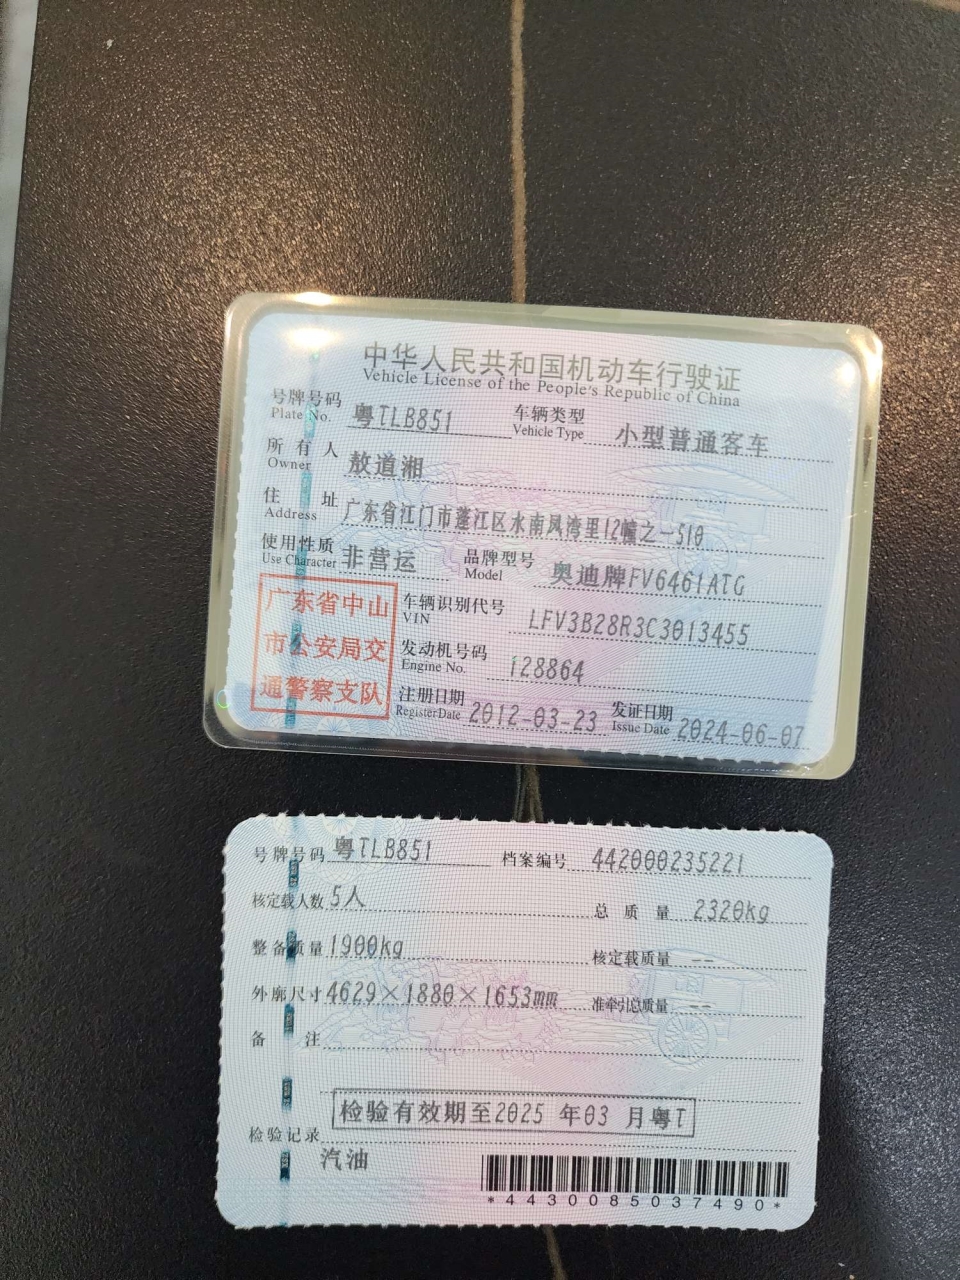 中华人民共和国机动车行驶证
Vehicle License of the People's Republic of China
号牌号码 粤TLB851 车辆类型 小型普通客车
Plate No. Vehicle Type
所有人 敖道湘
Owner
住址 广东省江门市蓬江区水南凤湾里12幢之一510
Address
使用性质 非营运 品牌型号 奥迪牌FV6461ATG
Use Character Model
广东省中山
市公安局交
通警察支队
车辆识别代号 LFV3B28R3C3013455
VIN
发动机号码 128864
Engine No.
注册日期 2012-03-23 发证日期 2024-06-07
Register Date Issue Date
号牌号码 粤TLB851 档案编号 442000235221
核定载人数 5人 总质量 2320kg
整备质量 1900kg 核定载质量 --
外廓尺寸 4629×1880×1653mm 准牵引总质量 --
备注
检验有效期至2025 年03 月粤T
检验记录
汽油
*4430085037490*